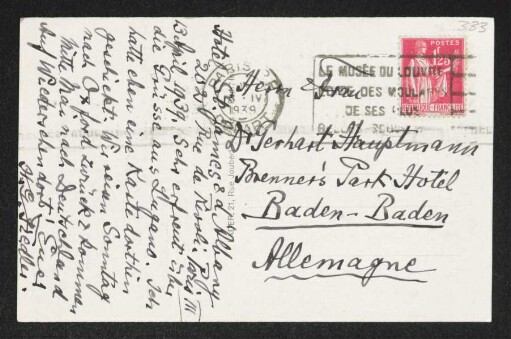 383
Hotel St. James & d'Albany
202 Rue de Rivoli, Paris. III
13 April 1939. Sehr erfreut über
die Grüsse aus Lugano. Ich
hatte eben eine Karte dorthin
geschickt. Wir reisen Sonntag
nach Oxford zurück & kommen
Mitte Mai nach Deutschland
Auf Wiedersehen dort! Euer
H. G. Fiedler.
PARIS
IV
1939
LE MUSÉE DU LOUVRE
DES MOULAGES
DE SES
POSTES
1F25
RÉPUBLIQUE FRANÇAISE
Herrn & Frau
Dr Gerhart Hauptmann
Brenner's Park Hotel
Baden-Baden
Allemagne
21, Rue Joubert